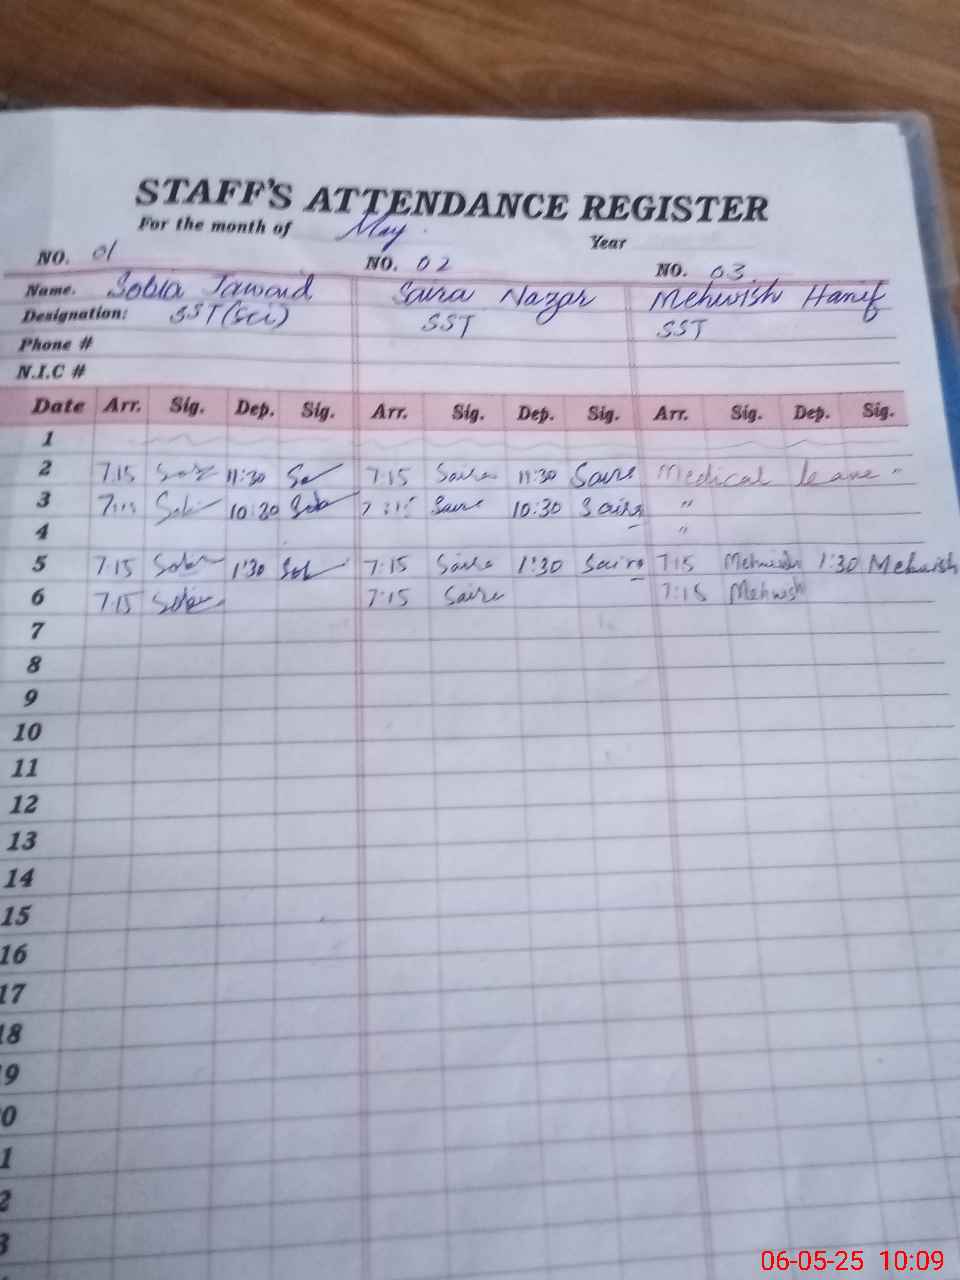 STAFF'S ATTENDANCE REGISTER
For the month of May. Year
NO. 01 NO. 02 NO. 03
Name. Sobia Jawaid Saira Nazar Mehwish Hanif
Designation: SST(Sci) SST SST
Phone #
N.I.C #
Date Arr. Sig. Dep. Sig. Arr. Sig. Dep. Sig. Arr. Sig. Dep. Sig.
1
2 7:15 11:30 7:15 Saira 11:30 Saira Medical leave "
3 7:15 10:30 7:15 Saira 10:30 Saira "
4 "
5 7:15 1:30 7:15 Saira 1:30 Saira 7:15 Mehwish 1:30 Mehwish
6 7:15 7:15 Saira 7:15 Mehwish
7
8
9
10
11
12
13
14
15
16
17
18
9
0
1
2
3
06-05-25 10:09